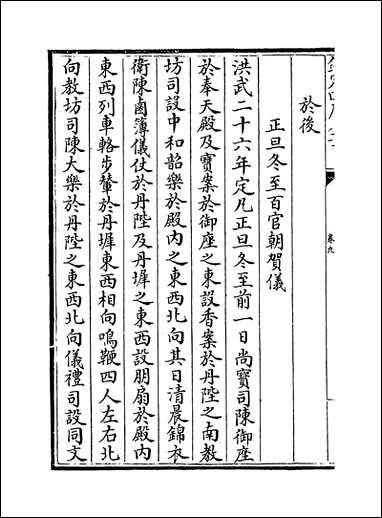 於後
正旦冬至百官朝賀儀
洪武二十六年定凡正旦冬至前一日尚寶司陳御座
於奉天殿及寶案於御座之東設香案於丹陛之南教
坊司設中和韶樂於殿内之東西北向其日清晨錦衣
衛陳鹵簿儀仗於丹陛及丹墀之東西設朋扇於殿内
東西列車輅步輦於丹墀東西相向鳴鞭四人左右北
向教坊司陳大樂於丹陛之東西北向儀禮司設同文
卷九